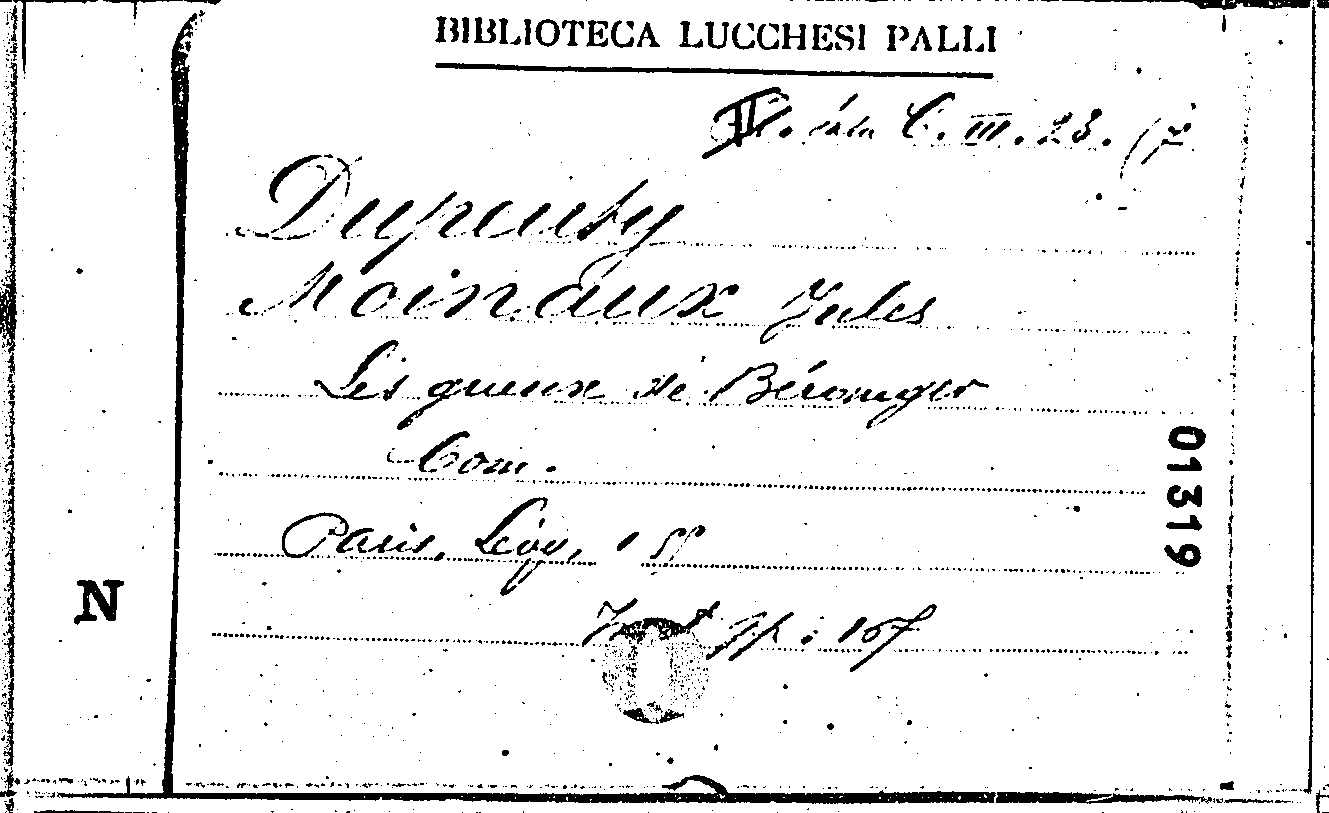 BIBLIOTECA LUCCHESI PALLI
III. sala C. III. 23. (7
Dupeuty
Moinaux Jules
Les gueux de Béranger
Com.
Paris, Lévy, 1855
pp. 107
01319
N